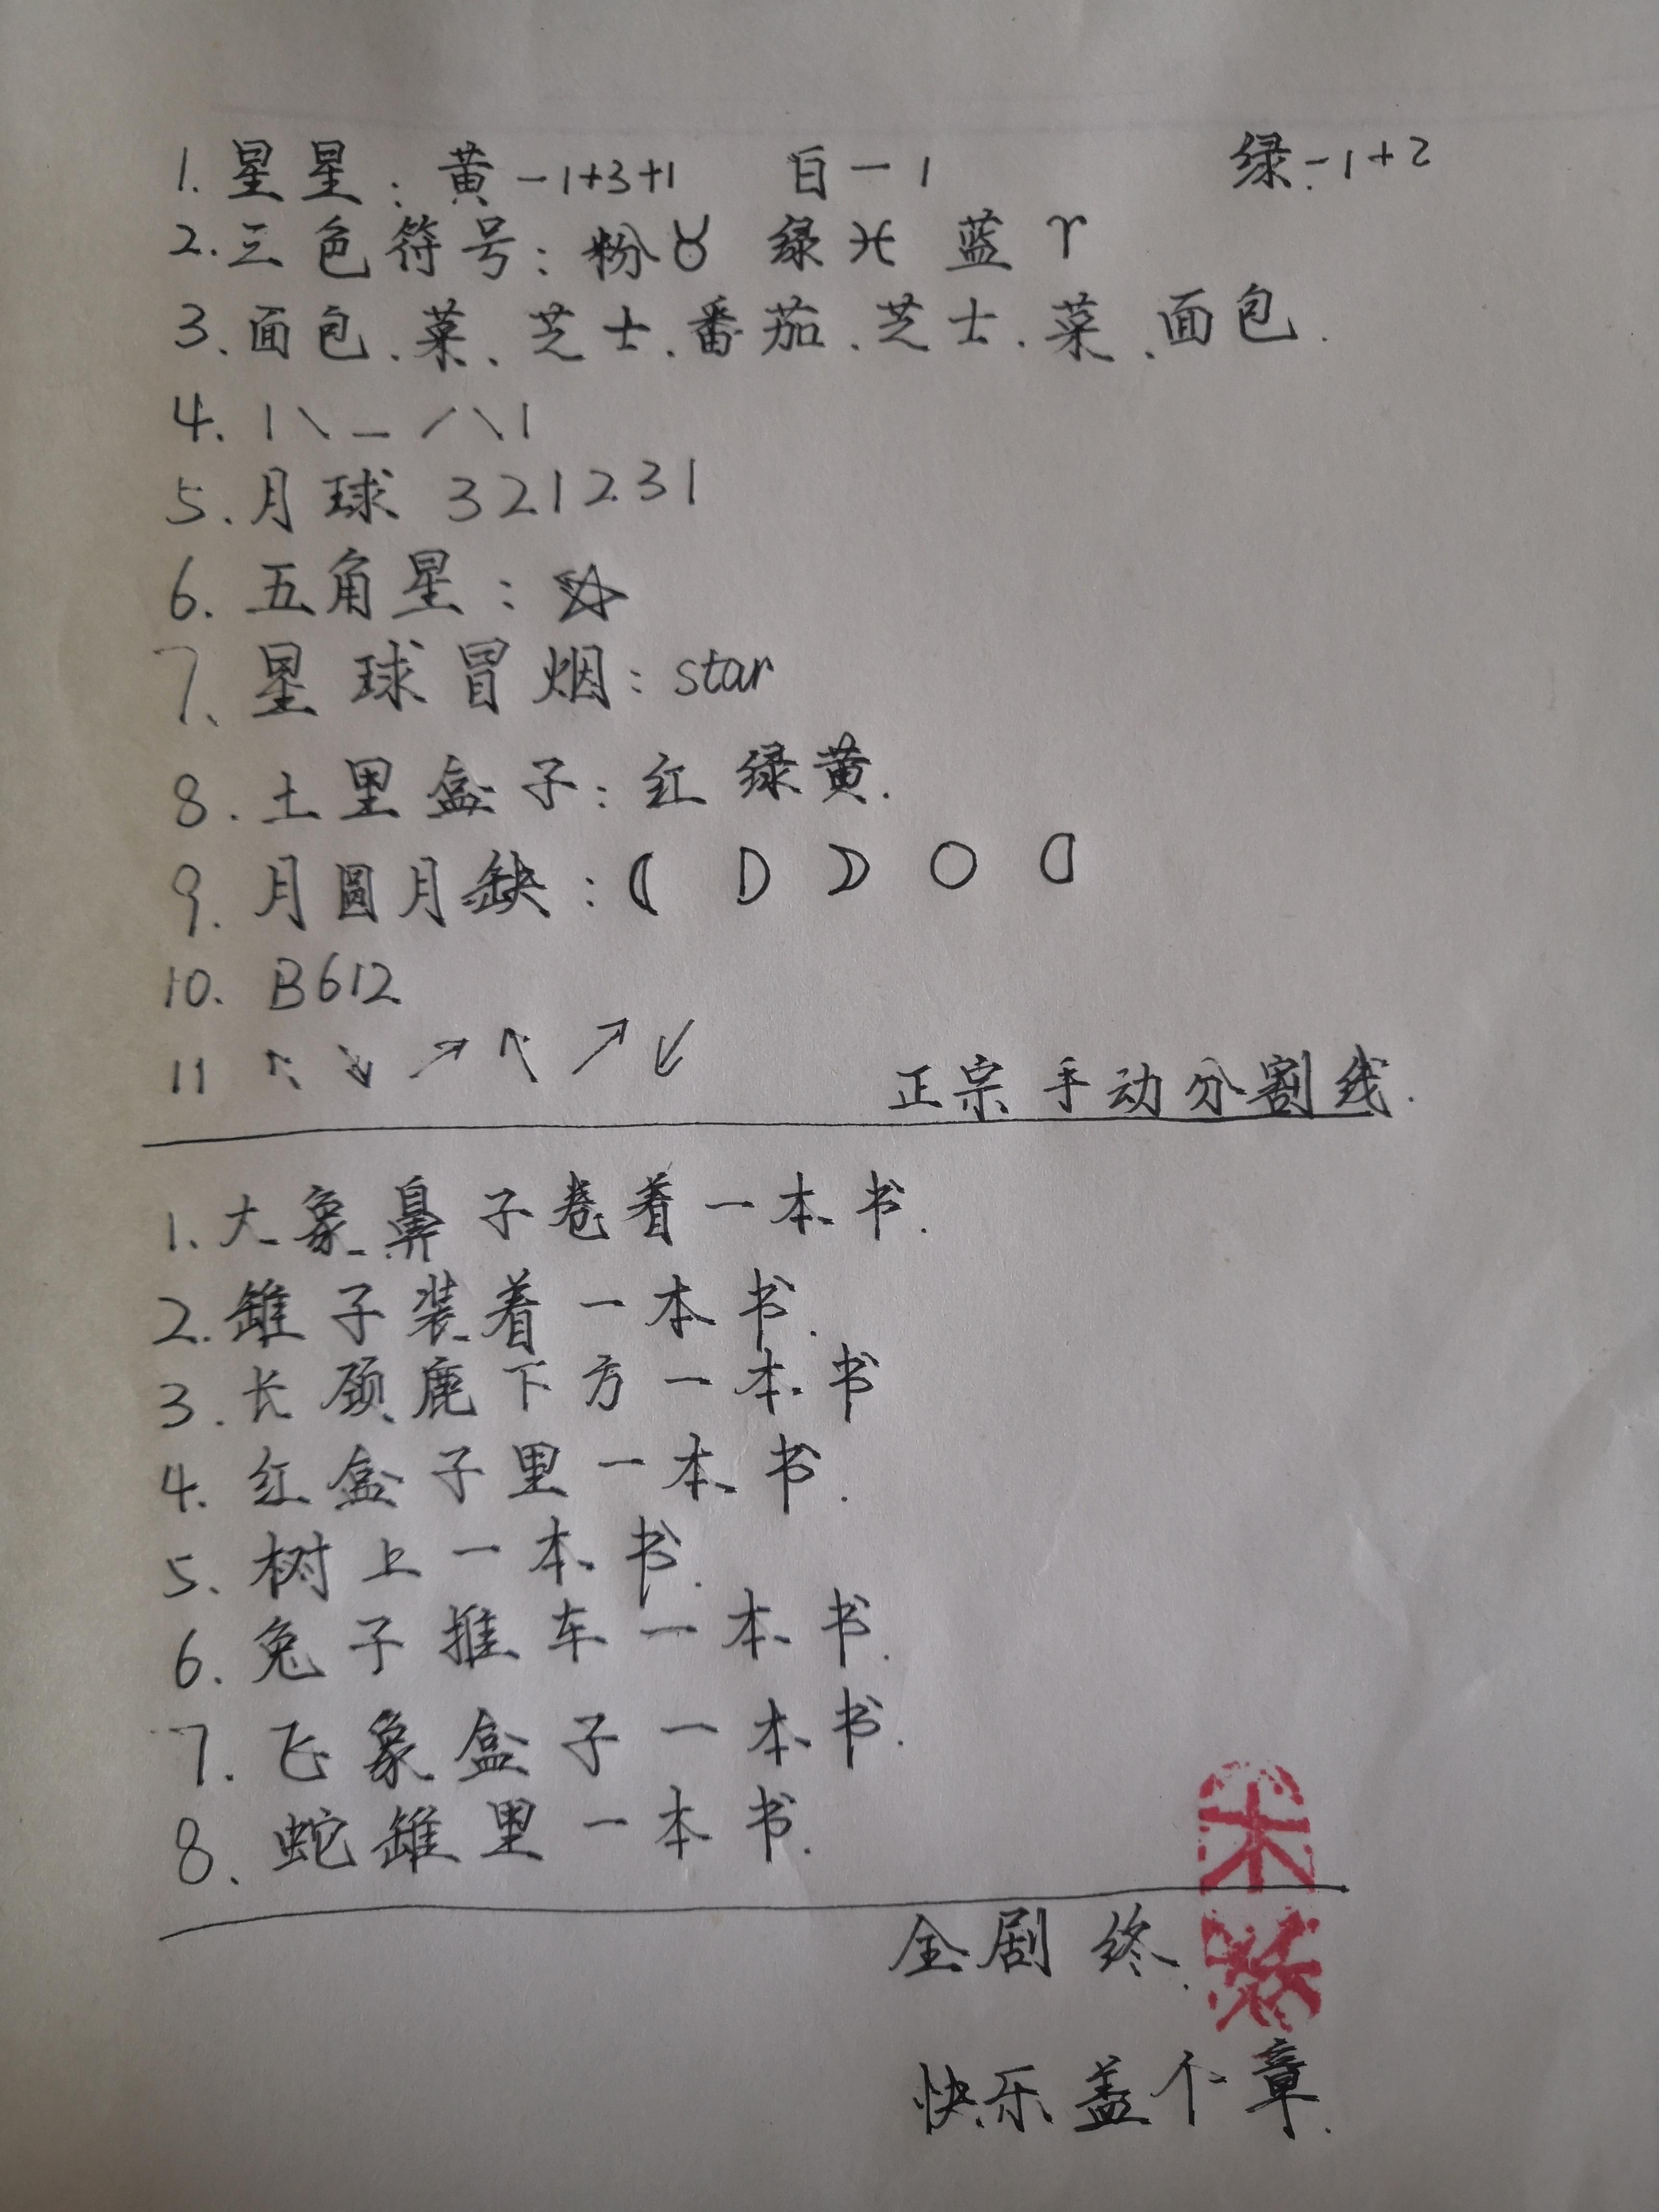 1. 星星: 黄-1+3+1 白-1 绿-1+2
2. 三色符号: 粉♉ 绿♓ 蓝♈
3、面包、菜、芝士、番茄、芝士、菜、面包.
4. | \ _ / \ |
5. 月球 321231
6. 五角星: ☆
7、星球冒烟: star
8. 土里盒子: 红绿黄.
9. 月圆月缺: ☾ D ☽ ○ ᗡ
10. B612
11 ↖ ↘ ↗ ↖ ↗ ↙
正宗手动分割线.
1. 大象鼻子卷着一本书.
2. 罐子装着一本书.
3. 长颈鹿下方一本书
4. 红盒子里一本书.
5. 树上一本书.
6. 兔子推车一本书.
7. 飞象盒子一本书.
8、蛇罐里一本书.
全剧终.
快乐盖个章.